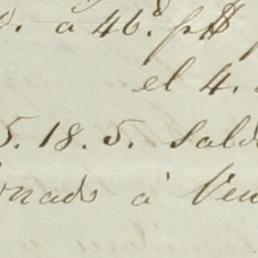 à 46.
el 4.
5. 18. 5. Sald
onado à Ven